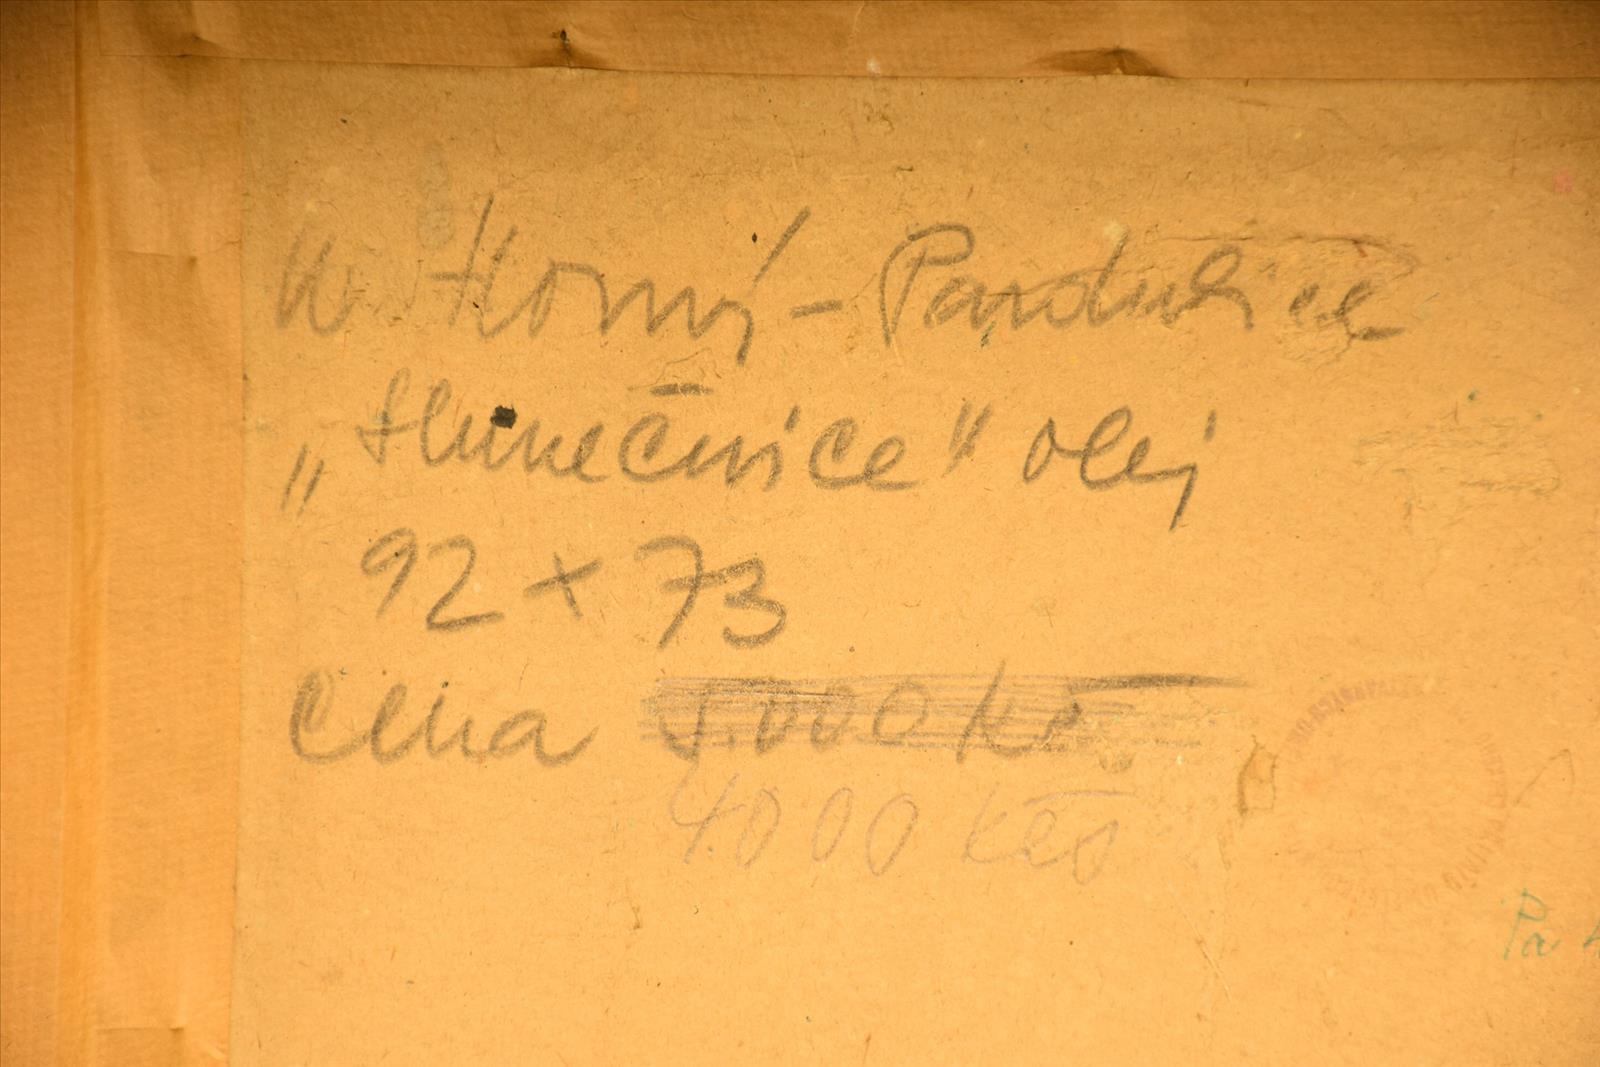 Horný - Pardubice
„Slunečnice" olej
92 x 73
Cena 5.000 Kč
4.000 Kčs
Pa